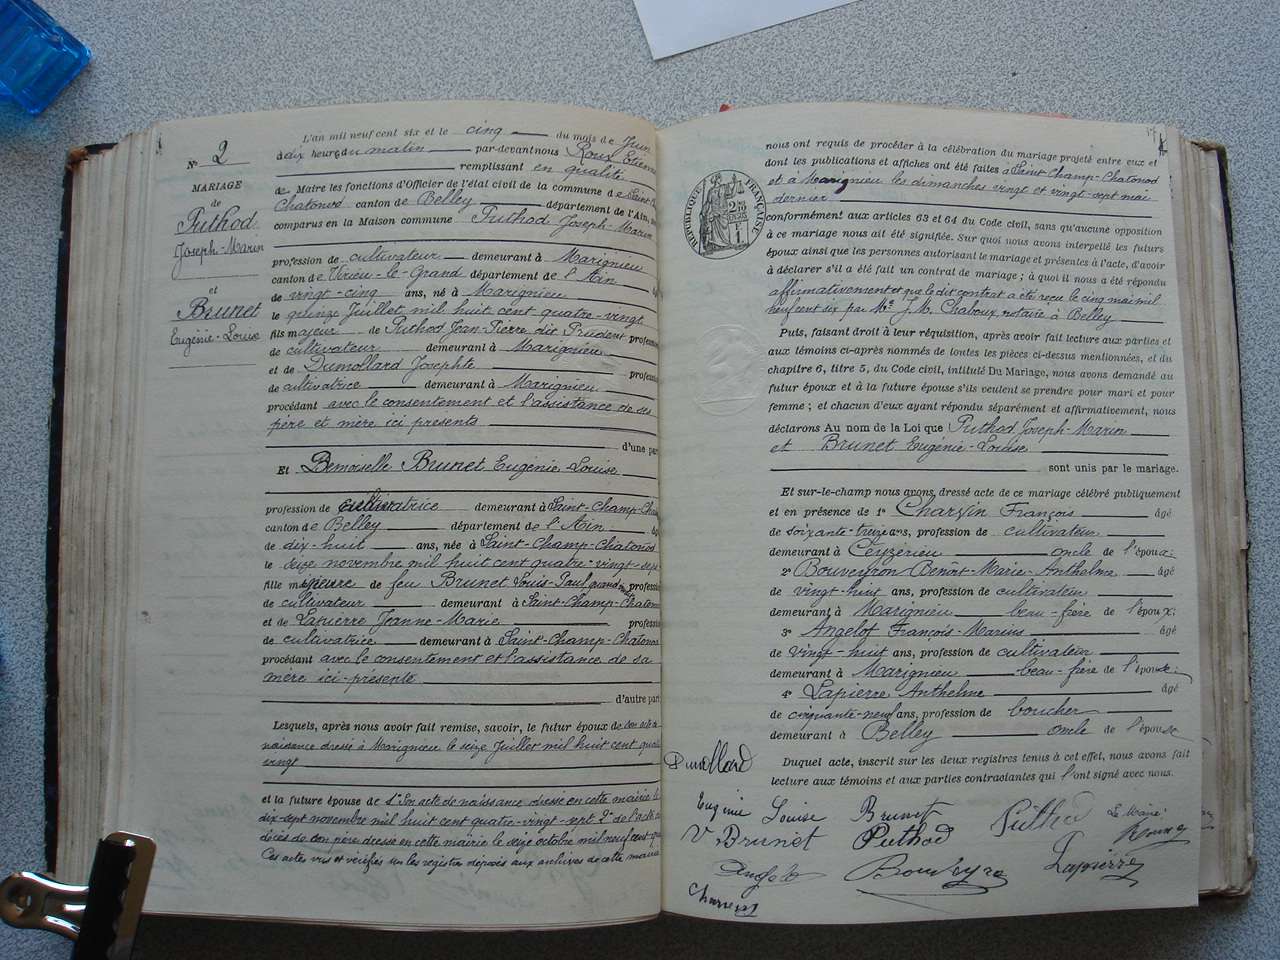 N° 2
MARIAGE
de
Puthod
Joseph-Marin
et
Brunet
Eugénie-Louise
L'an mil neuf cent six et le cinq du mois de Juin
à dix heures du matin par-devant nous Roux Etienne
remplissant en qualité
de Maire les fonctions d'Officier de l'état civil de la commune de Saint-Ch
Chatonod canton de Belley département de l'Ain,
comparus en la Maison commune Puthod Joseph-Marin
profession de cultivateur demeurant à Marignieu
canton de Virieu-le-Grand département de l'Ain âg
de vingt-cinq ans, né à Marignieu
le quinze Juillet mil huit cent quatre-vingt
fils majeur de Puthod Jean-Pierre dit Prudent profession
de cultivateur demeurant à Marignieu
et de Dumollard Josephte profession
de cultivatrice demeurant à Marignieu
procédant avec le consentement et l'assistance de ses
père et mère ici présents
d'une part
Et Demoiselle Brunet Eugénie-Louise
profession de cultivatrice demeurant à Saint-Champ-Cha
canton de Belley département de l'Ain âg
de dix-huit ans, née à Saint-Champ-Chatonod
le seize novembre mil huit cent quatre-vingt-sept
fille mineure de feu Brunet Louis-Paul quand vivait profession
de cultivateur demeurant à Saint-Champ-Chatonod
et de Lapierre Jeanne-Marie profession
de cultivatrice demeurant à Saint-Champ-Chatonod
procédant avec le consentement et l'assistance de sa
mère ici-présente
d'autre part
Lesquels, après nous avoir fait remise, savoir, le futur époux de son acte de
naissance dressé à Marignieu le seize Juillet mil huit cent quatre
vingt
et la future épouse de 1° Son acte de naissance dressé en cette mairie le
dix-sept novembre mil huit cent quatre-vingt-sept 2° de l'acte de
décès de son père dressé en cette mairie le seize octobre mil neuf cent
Ces actes vus et vérifiés sur les registres déposés aux archives de cette mairie
nous ont requis de procéder à la célébration du mariage projeté entre eux et
dont les publications et affiches ont été faites à Saint-Champ-Chatonod
et à Marignieu les dimanches vingt et vingt-sept mai
dernier
conformément aux articles 63 et 64 du Code civil, sans qu'aucune opposition
à ce mariage nous ait été signifiée. Sur quoi nous avons interpellé les futurs
époux ainsi que les personnes autorisant le mariage et présentes à l'acte, d'avoir
à déclarer s'il a été fait un contrat de mariage ; à quoi il nous a été répondu
affirmativement et que le dit contrat a été reçu le cinq mai mil
neuf cent six par Me J. M. Chaboux notaire à Belley
Puis, faisant droit à leur réquisition, après avoir fait lecture aux parties et
aux témoins ci-après nommés de toutes les pièces ci-dessus mentionnées, et du
chapitre 6, titre 5, du Code civil, intitulé Du Mariage, nous avons demandé au
futur époux et à la future épouse s'ils veulent se prendre pour mari et pour
femme ; et chacun d'eux ayant répondu séparément et affirmativement, nous
déclarons Au nom de la Loi que Puthod Joseph-Marin
et Brunet Eugénie-Louise
sont unis par le mariage.
Et sur-le-champ nous avons, dressé acte de ce mariage célébré publiquement
et en présence de 1° Charvin François âgé
de soixante-treize ans, profession de cultivateur
demeurant à Ceyzérieu oncle de l'époux:
2° Bouveyron Benoît-Marie-Anthelme âgé
de vingt-huit ans, profession de cultivateur
demeurant à Marignieu beau-frère de l'époux;
3° Angelot François-Marius âgé
de vingt-huit ans, profession de cultivateur
demeurant à Marignieu beau-frère de l'épouse;
4° Lapierre Anthelme âgé
de cinquante-neuf ans, profession de boucher
demeurant à Belley oncle de l'épouse
Duquel acte, inscrit sur les deux registres tenus à cet effet, nous avons fait
lecture aux témoins et aux parties contractantes qui l'ont signé avec nous.
Dumollard
Eugénie Louise Brunet Puthod Le Maire
Vve Brunet Puthod Roux
Angelot Bouveyron Lapierre
Charvin
RÉPUBLIQUE FRANÇAISE